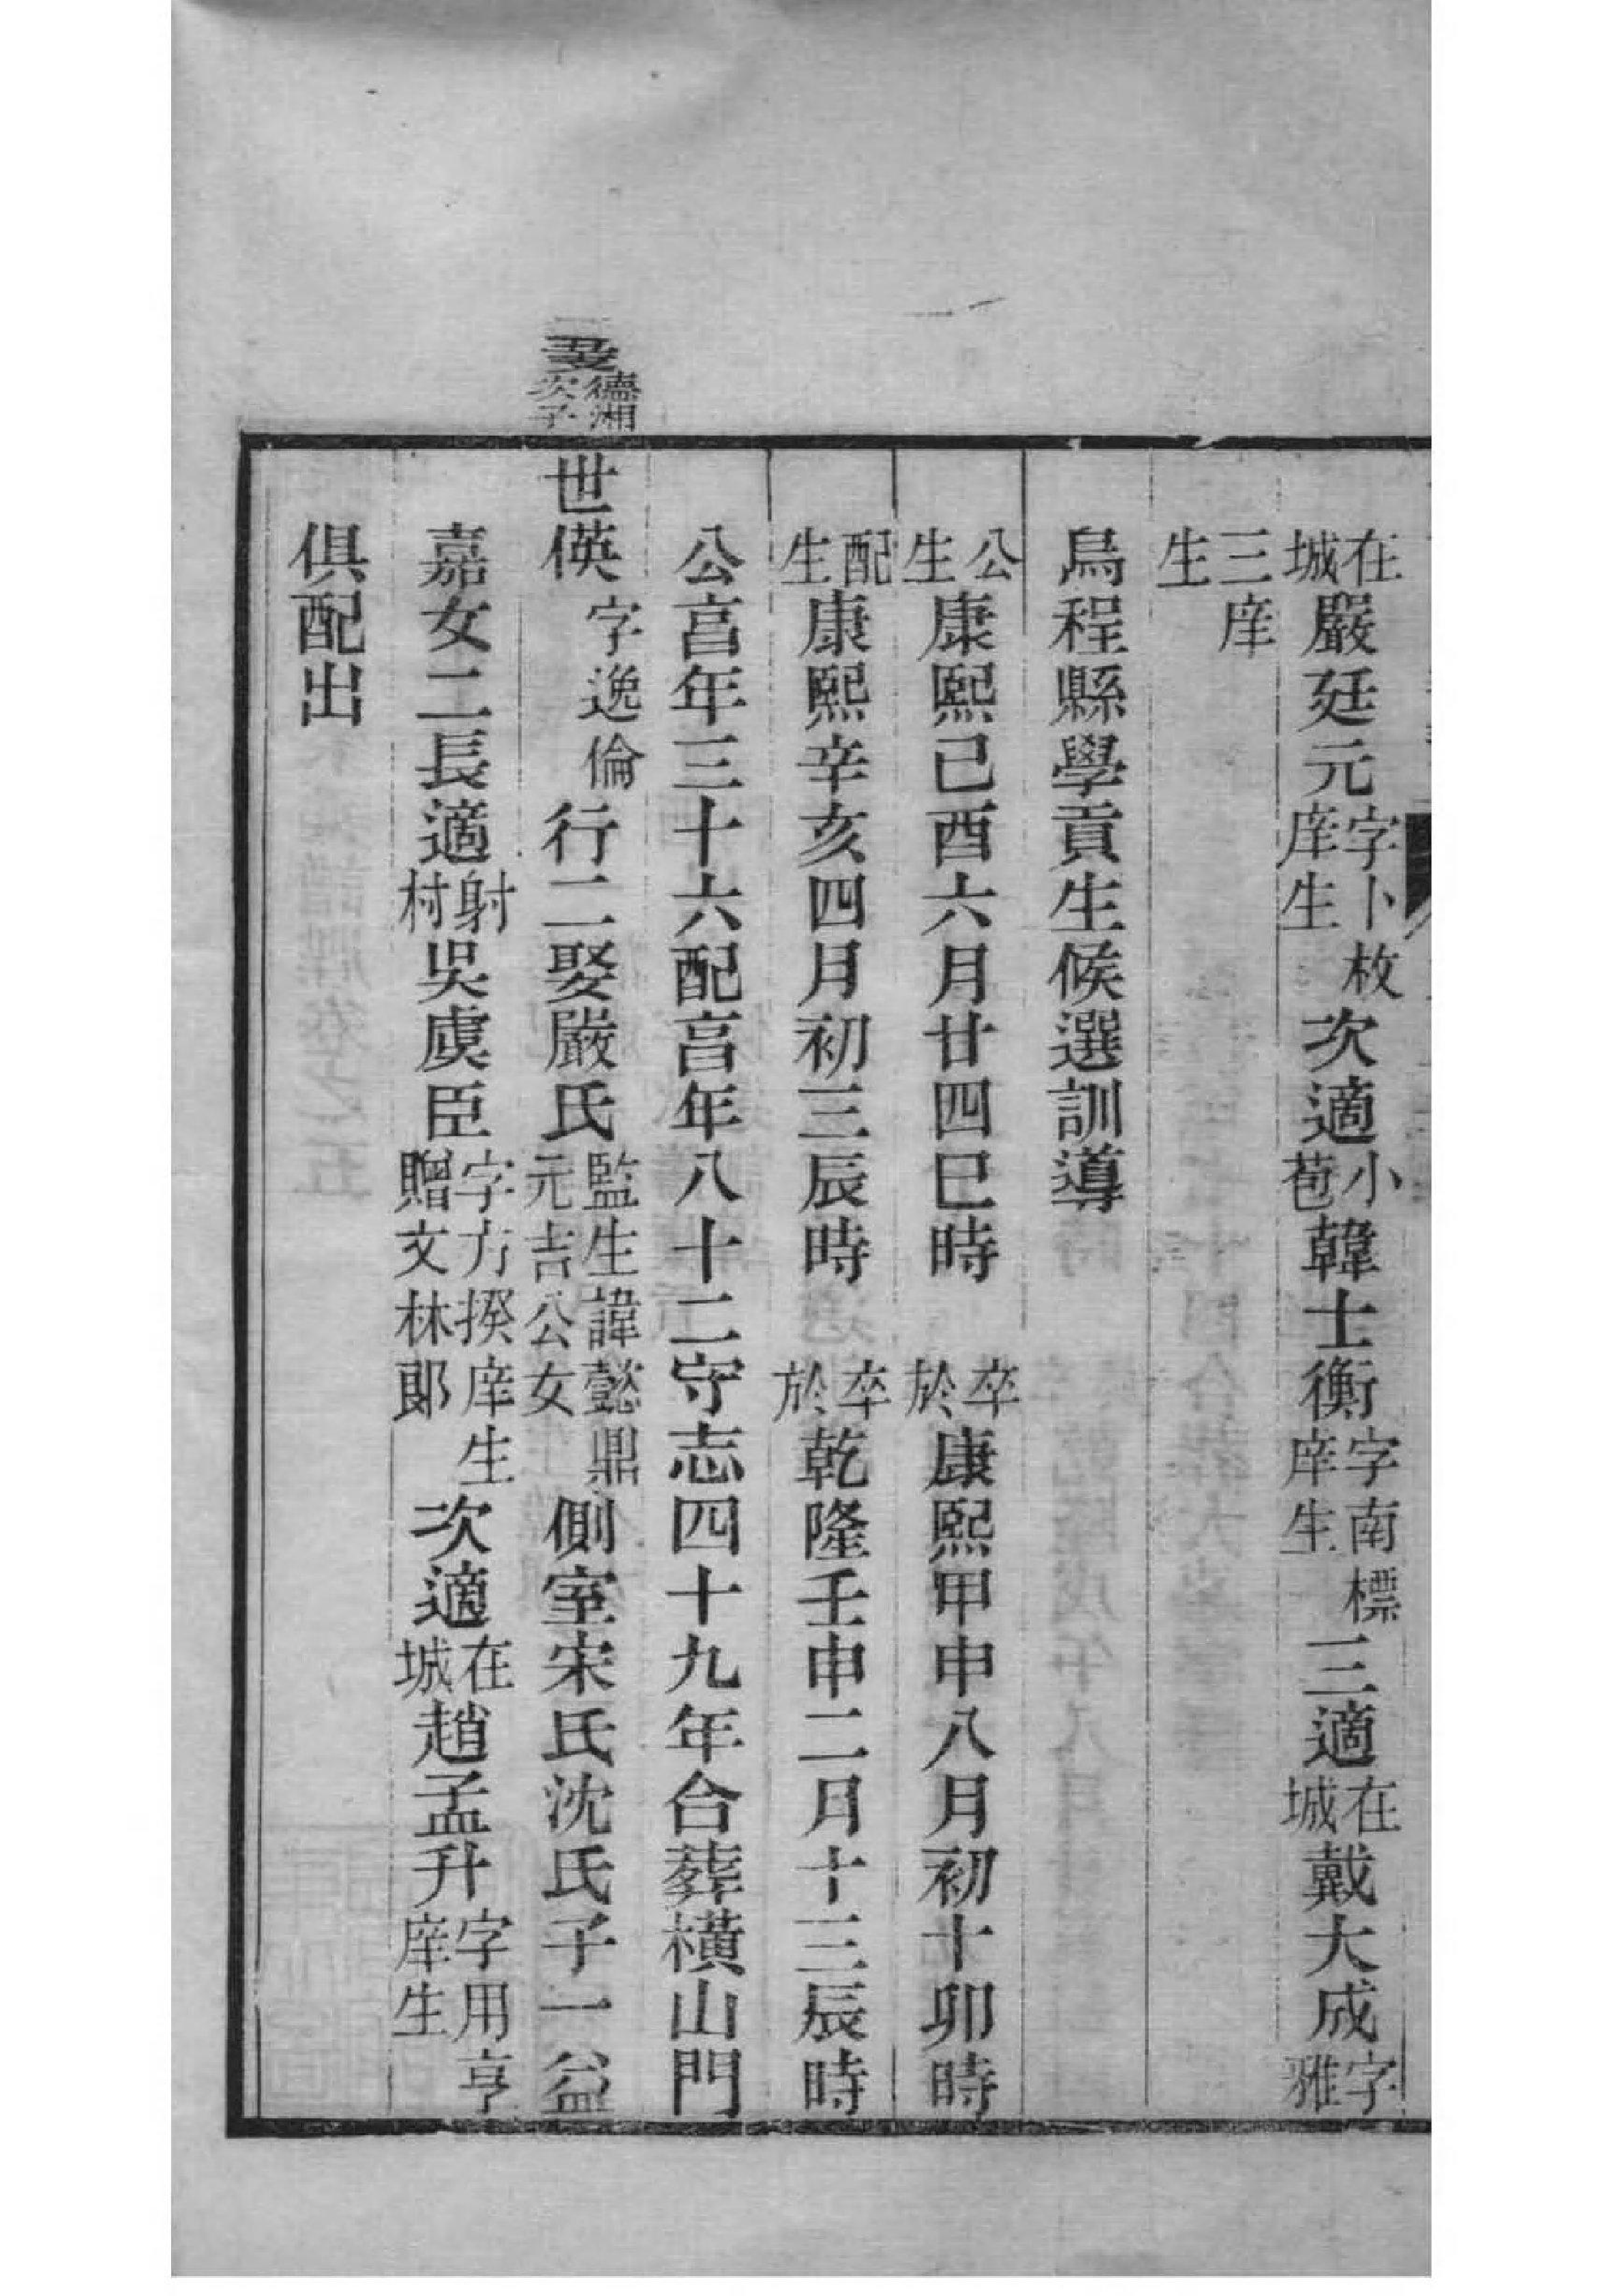 在城嚴廷元字卜枚庠生次適小苞韓士衡字南標庠生三適在城戴大成字雅
三庠生
烏程縣學貢生候選訓導
公生康熙己酉六月廿四巳時 卒於康熙甲申八月初十卯時
配生康熙辛亥四月初三辰時 卒於乾隆壬申二月十三辰時
公亯年三十六配亯年八十二守志四十九年合葬橫山門
德湘次子
世偀字逸倫行二娶嚴氏監生諱懿鼎元吉公女側室宋氏沈氏子一益
嘉女二長適射村吳虞臣字方揆庠生贈文林郎次適在城趙孟升字用亨庠生
俱配出